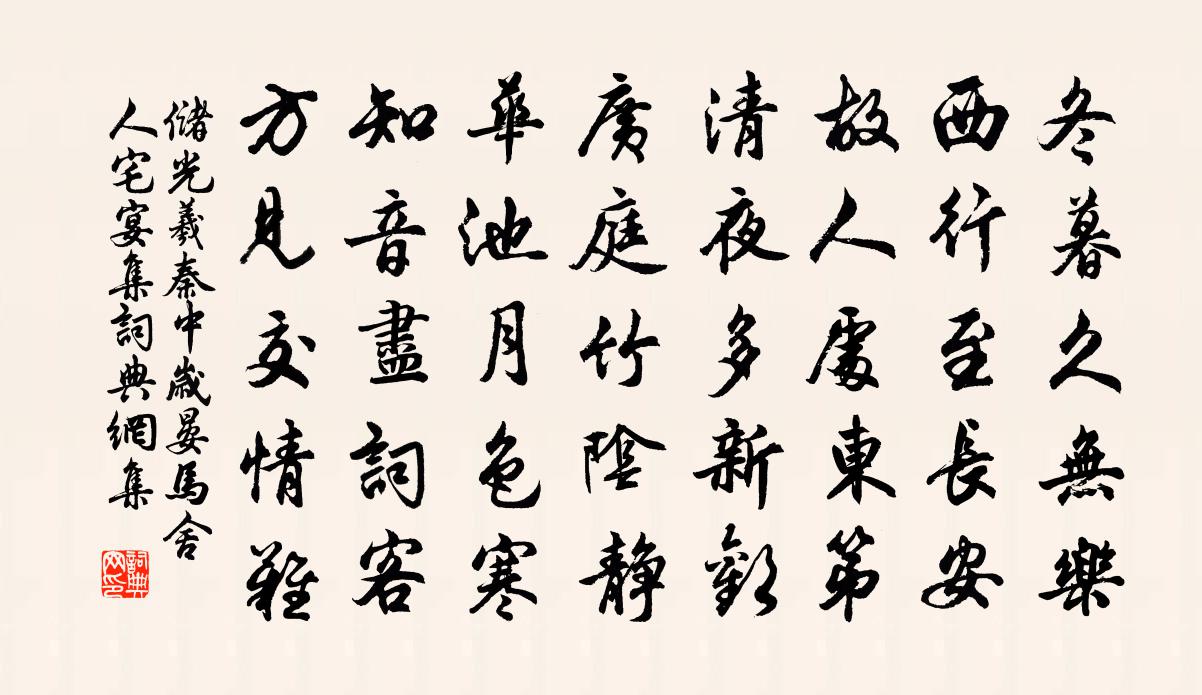 冬暮久無樂
西行至長安
故人處東第
清夜多新歡
廣庭竹陰靜
華池月色寒
知音盡詞客
方見交情難
儲光羲秦中歲晏馬舍
人宅宴集詞典網集
詞典網印